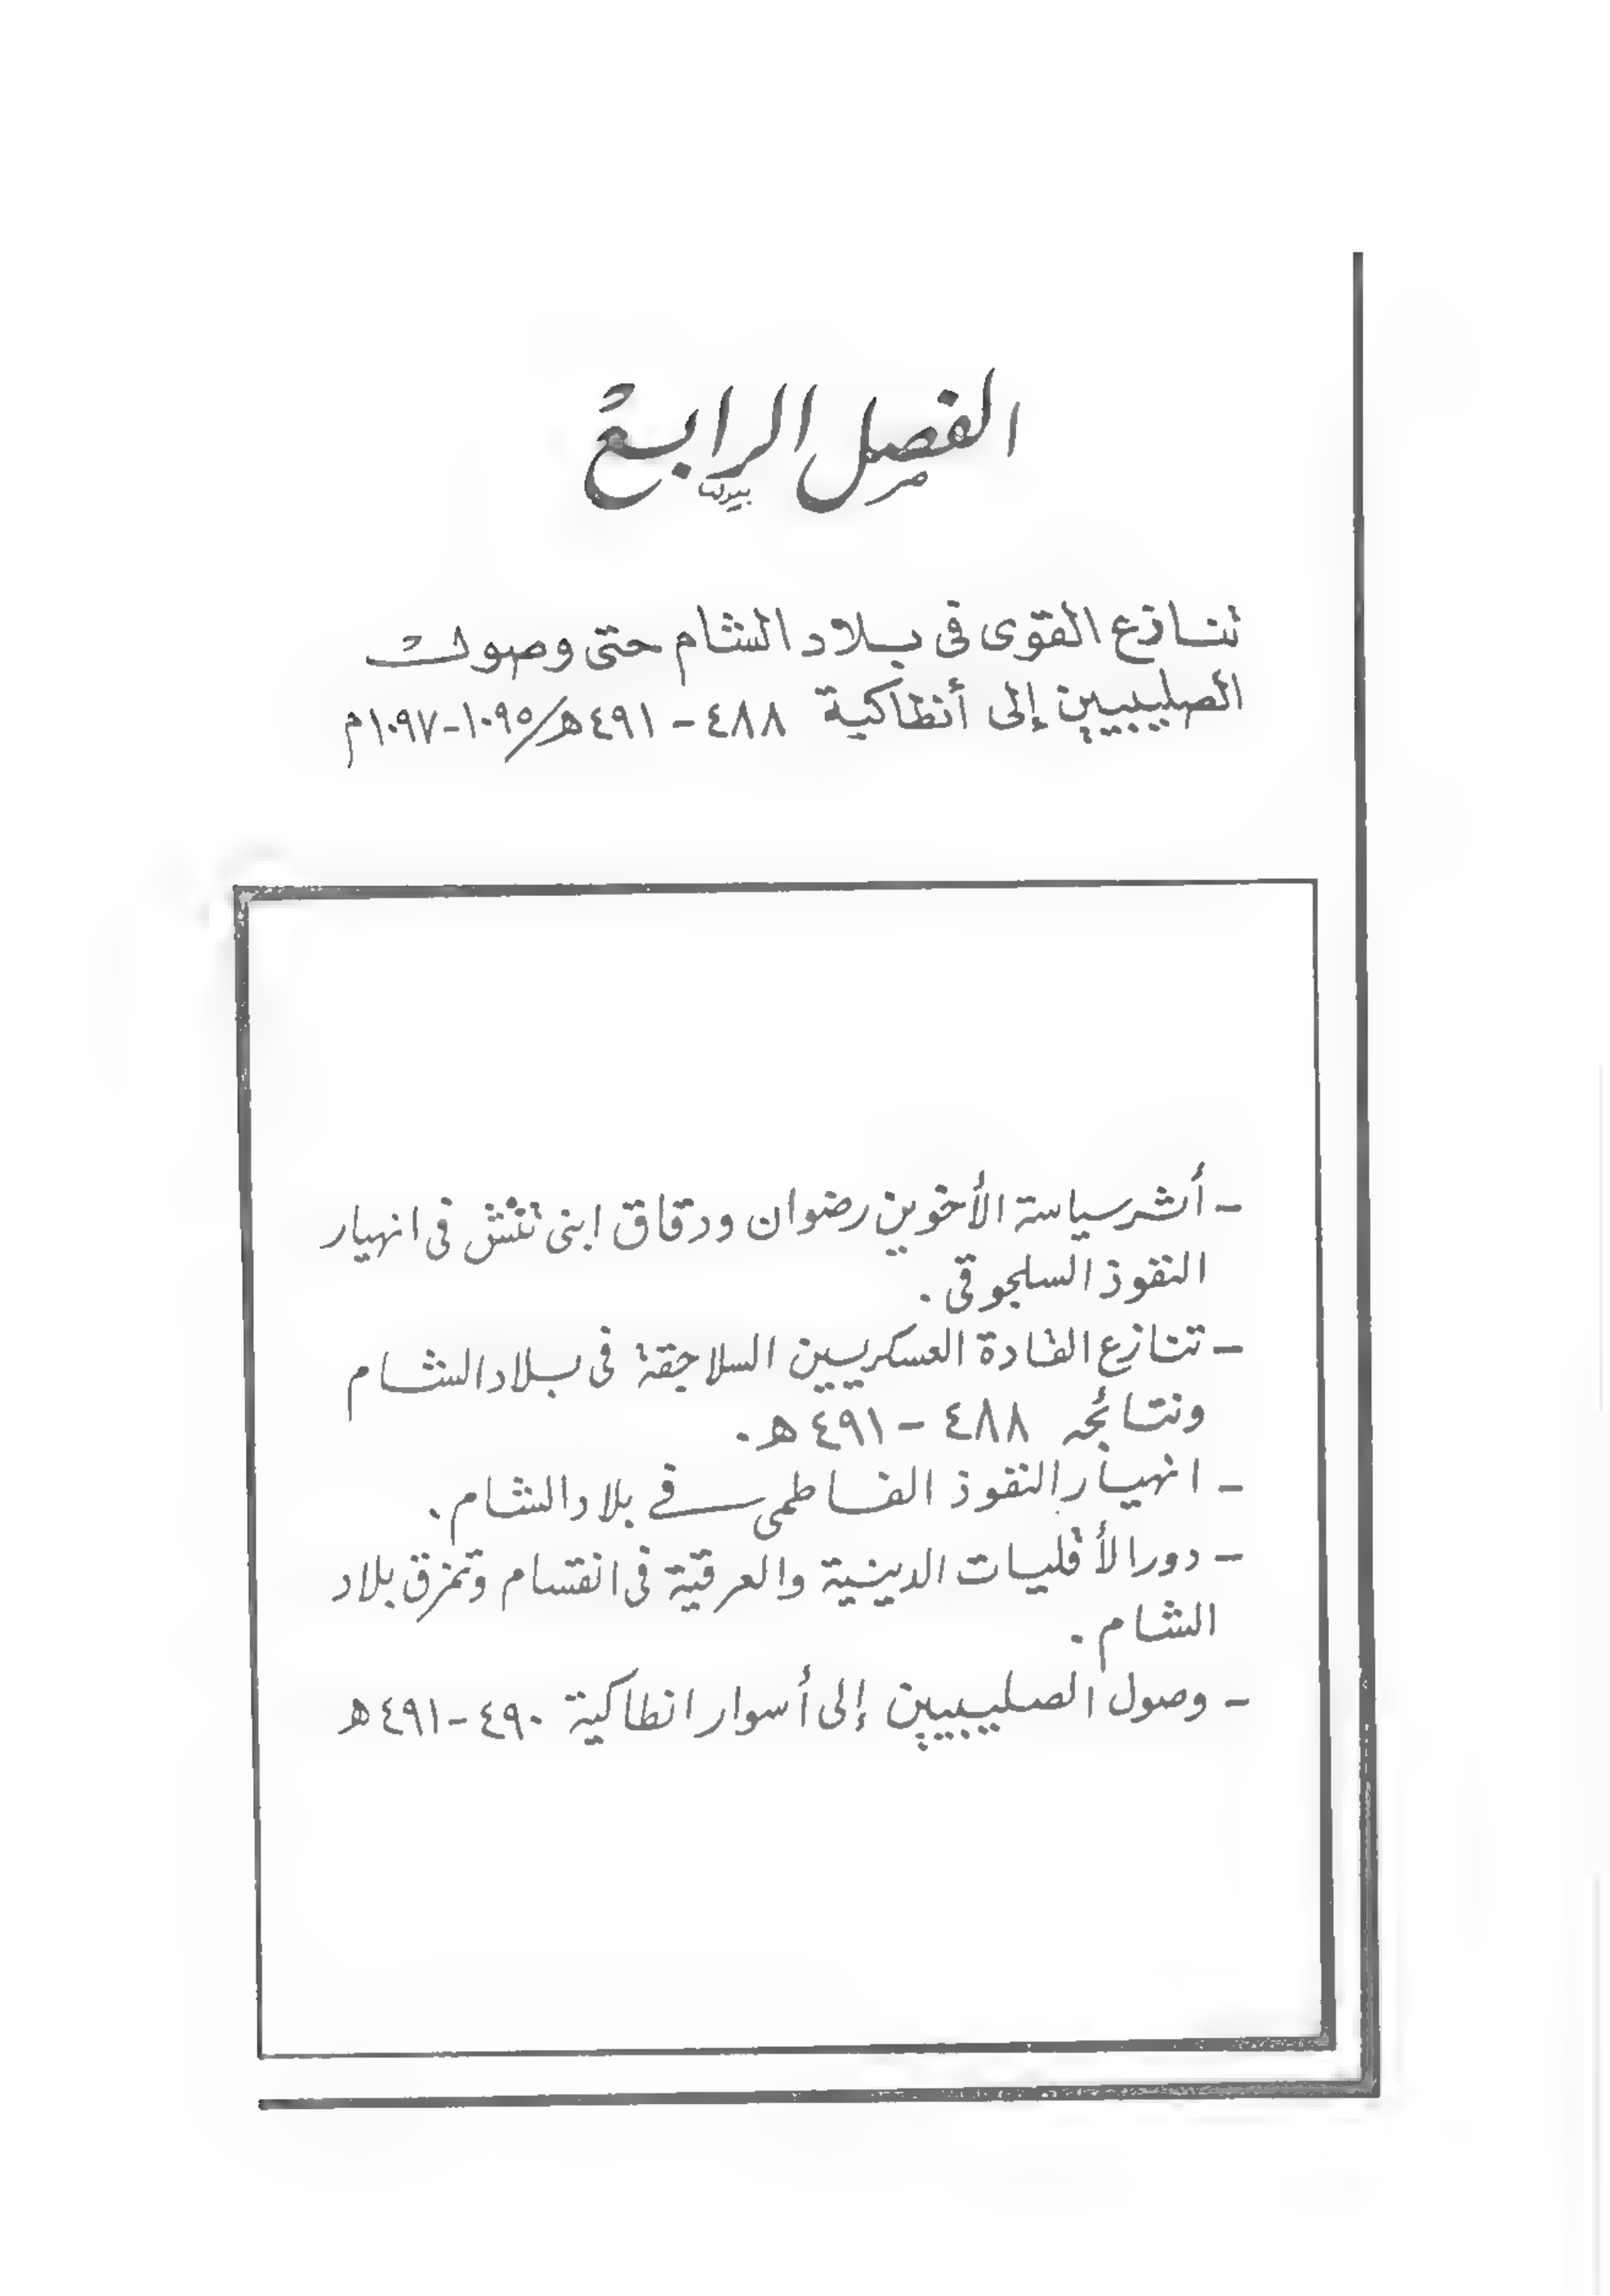 الفصل الرابع
تنازع القوى فى بلاد الشام حتى وصول
الصليبيين إلى أنطاكية ٤٨٨ - ٤٩١هـ/١٠٩٥-١٠٩٧م
- أثر سياسة الأخوين رضوان ودقاق ابنى تتش فى انهيار
النفوذ السلجوقى .
- تنازع القادة العسكريين السلاجقة فى بلاد الشام
ونتائجه ٤٨٨ - ٤٩١ هـ .
- انهيار النفوذ الفاطمى فى بلاد الشام .
- دور الأقليات الدينية والعرقية فى انقسام وتمزق بلاد
الشام .
- وصول الصليبيين إلى أسوار انطاكية ٤٩٠-٤٩١هـ